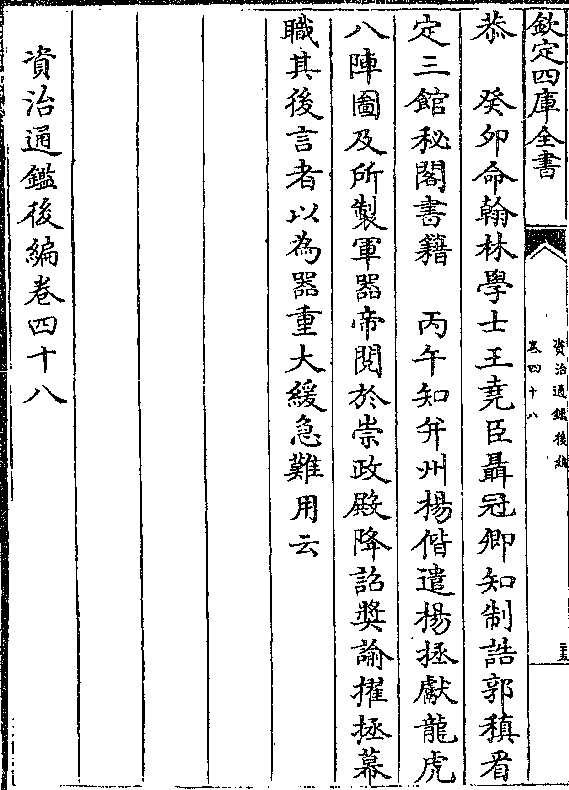 欽定四庫全書
資治通鑑後編
卷四十八
恭　癸夘命翰林學士王堯臣聶冠卿知制誥郭稹看
定三館秘閣書籍　丙午知并州楊偕遣楊拯獻龍虎
八陣圖及所製軍器帝閱於崇政殿降詔奬諭擢拯幕
職其後言者以為器重大緩急難用云
資治通鑑後編卷四十八